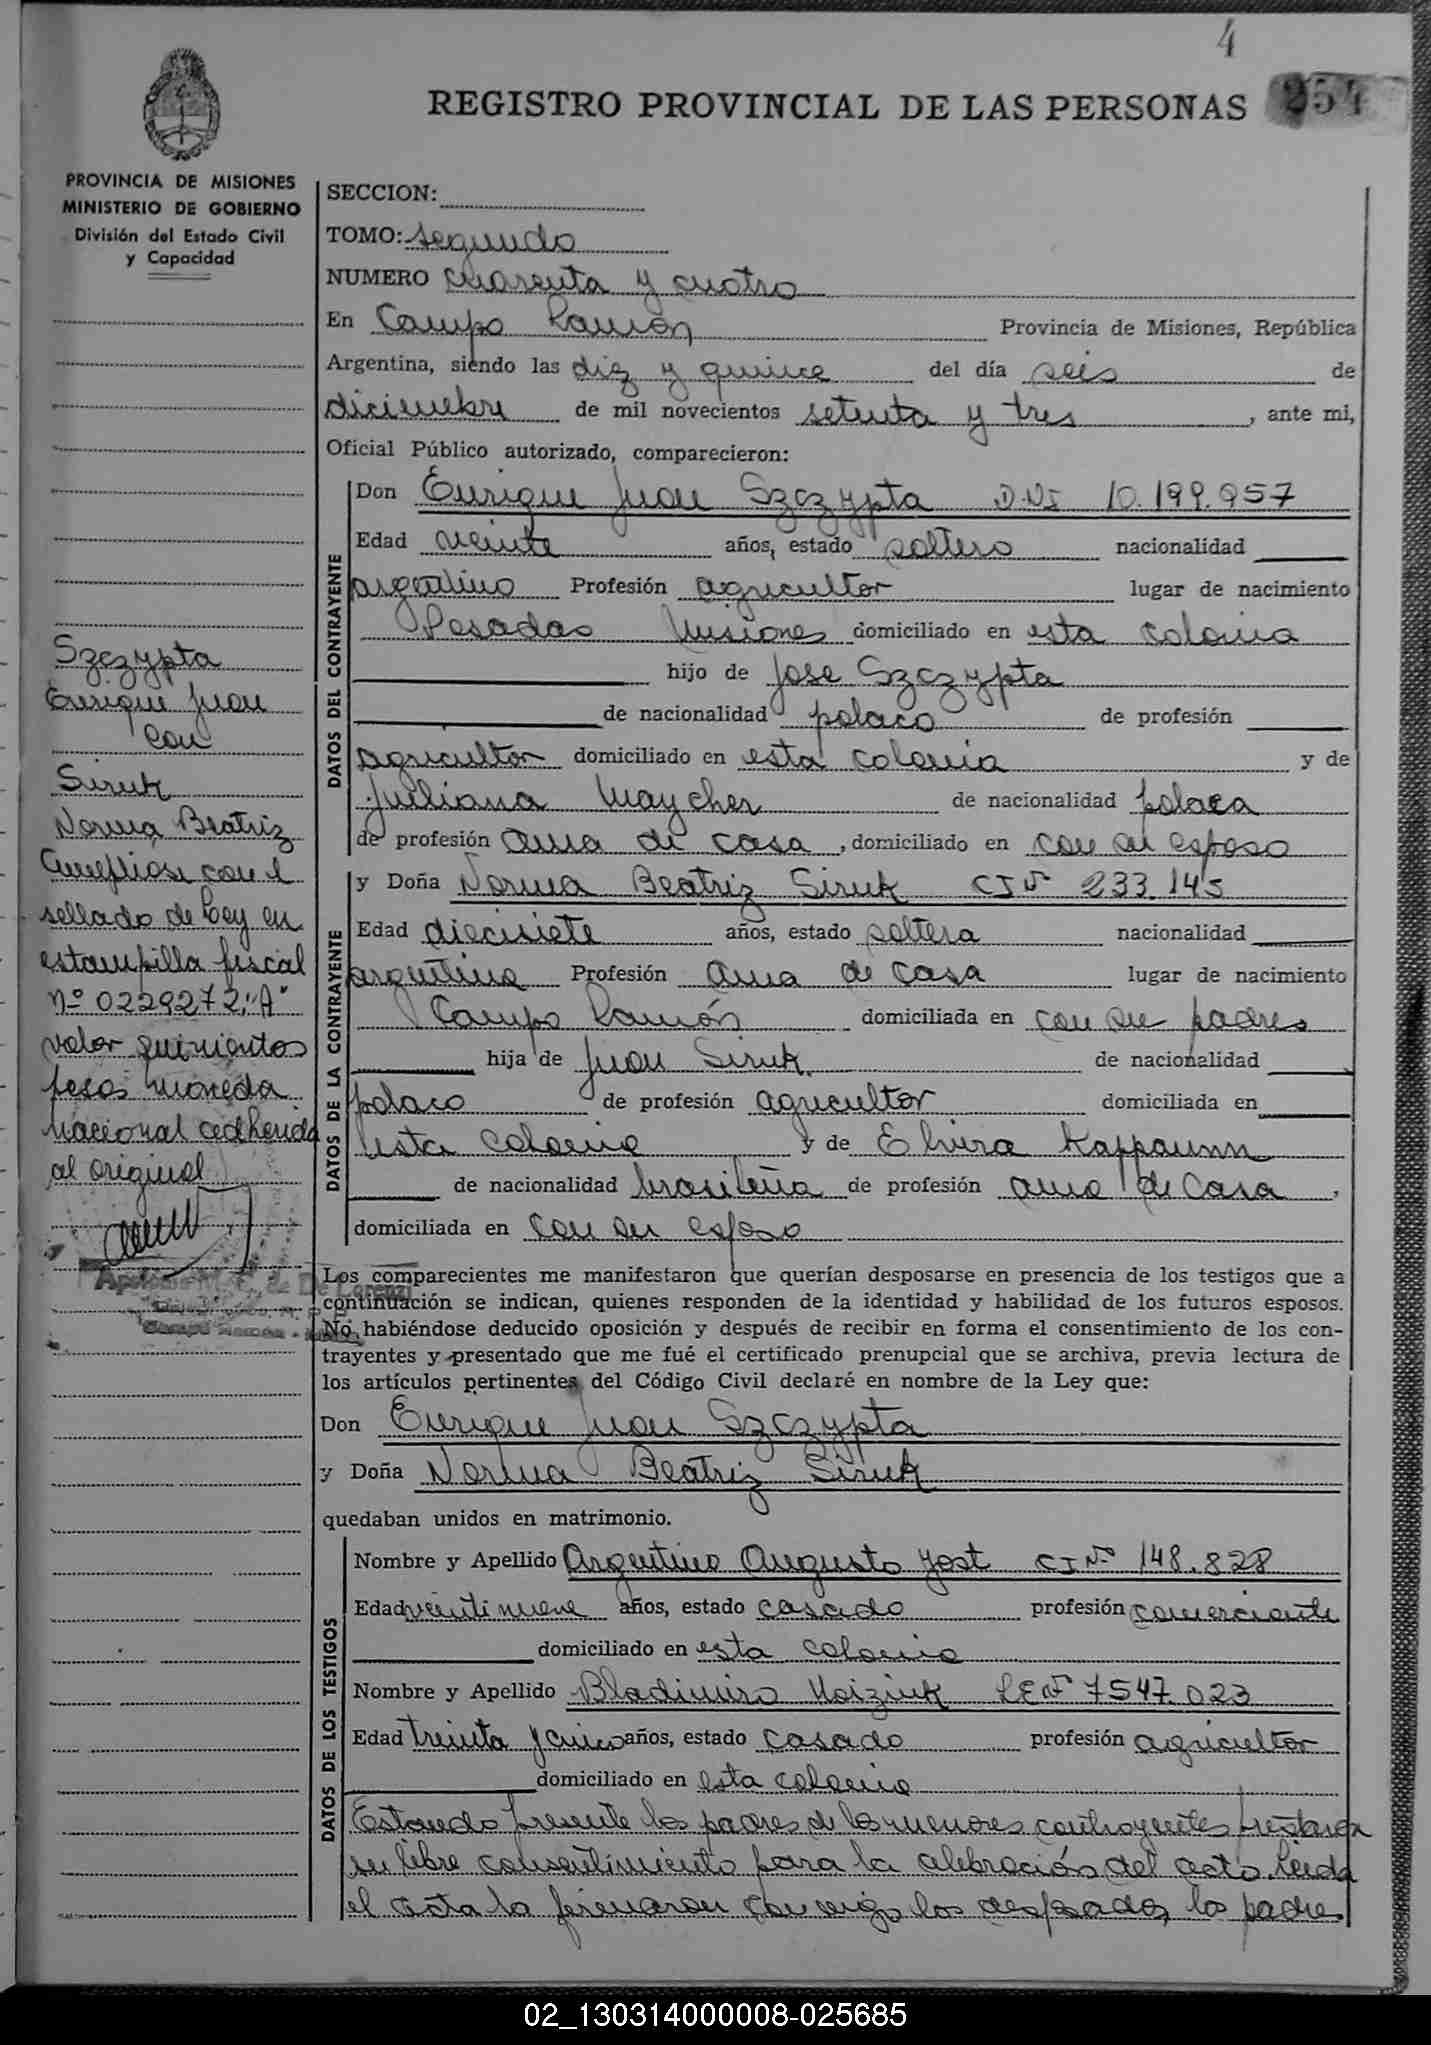 4
REGISTRO PROVINCIAL DE LAS PERSONAS 254
PROVINCIA DE MISIONES
MINISTERIO DE GOBIERNO
División del Estado Civil
y Capacidad
SECCION:
TOMO: segundo
NUMERO cuarenta y cuatro
En Campo Ramón Provincia de Misiones, República
Argentina, siendo las diez y quince del día seis de
diciembre de mil novecientos setenta y tres, ante mi,
Oficial Público autorizado, comparecieron:
DATOS DEL CONTRAYENTE
Don Enrique Juan Szczypta D.N.I 10.199.957
Edad veinte años, estado soltero nacionalidad
argentino Profesión agricultor lugar de nacimiento
Posadas Misiones domiciliado en esta colonia
hijo de Jose Szczypta
de nacionalidad polaco de profesión
agricultor domiciliado en esta colonia y de
Juliana Maycher de nacionalidad polaca
de profesión ama de casa, domiciliado en con su esposo
DATOS DE LA CONTRAYENTE
y Doña Norma Beatriz Siruk CI Nº 233.145
Edad diecisiete años, estado soltera nacionalidad
argentina Profesión ama de casa lugar de nacimiento
Campo Ramón domiciliada en con su padres
hija de Juan Siruk de nacionalidad
polaco de profesión agricultor domiciliada en
esta colonia y de Elvira Kappaunn
de nacionalidad brasileña de profesión ama de casa,
domiciliada en con su esposo
Los comparecientes me manifestaron que querían desposarse en presencia de los testigos que a
continuación se indican, quienes responden de la identidad y habilidad de los futuros esposos.
No habiéndose deducido oposición y después de recibir en forma el consentimiento de los con-
trayentes y presentado que me fué el certificado prenupcial que se archiva, previa lectura de
los artículos pertinentes del Código Civil declaré en nombre de la Ley que:
Don Enrique Juan Szczypta
y Doña Norma Beatriz Siruk
quedaban unidos en matrimonio.
DATOS DE LOS TESTIGOS
Nombre y Apellido Argentino Augusto Jost CI Nº 148.828
Edad veintinueve años, estado casado profesión comerciante
domiciliado en esta colonia
Nombre y Apellido Bladimiro Moiziuk LE Nº 7547.023
Edad treinta y cinco años, estado casado profesión agricultor
domiciliado en esta colonia
Estando presente los padres de los menores contrayentes prestaron
su libre consentimiento para la celebración del acto. Leida
el acta la firmaron conmigo los desposados, los padre
Szczypta
Enrique Juan
con
Siruk
Norma Beatriz
Cumpliose con el
sellado de Ley en
estampilla fiscal
nº 0229272, "A"
valor quinientos
pesos moneda
nacional adherida
al original
de De Lorenzi
Campo Ramón
02_130314000008-025685